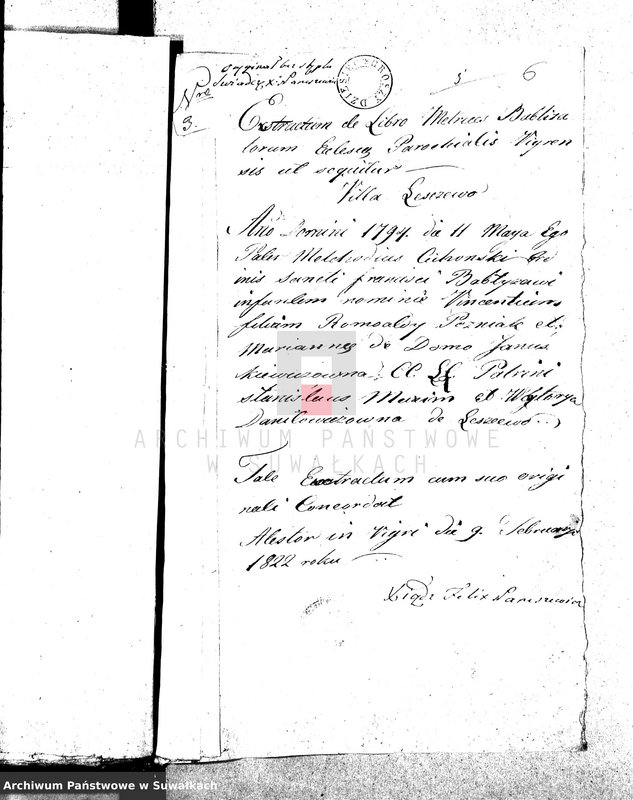 oryginał bez stępla
Świadczę X: Paniszewicz
Nro
3.
DZIESIĘĆ GROSZY
5
6
Extractum de Libro Metrices Babtiza
torum Eclesię Parochialis Vigren
sis ut sequitur
Villa Leszewo
Ano Domini 1794. die 11 Maya Ego
Pater Melchodius Cichonski
inis Sancti Francisci Babtyzawi
infantem nomine Vincentium
filium Romoaldy Pozniak et
Mariannę de Domo Janus
kiewiczowna. CC. LL. Patrini
Stanislaus Maxim et Wyktorya
Danilowiczowna de Leszewo
Tale Extractum cum suo origi
nali Concordat
Atestor in Vigri die 9. Februarji
1822 roku
Xiądz Felix Paniszewicz
ARCHIWUM PAŃSTWOWE
W SUWAŁKACH
Archiwum Państwowe w Suwałkach